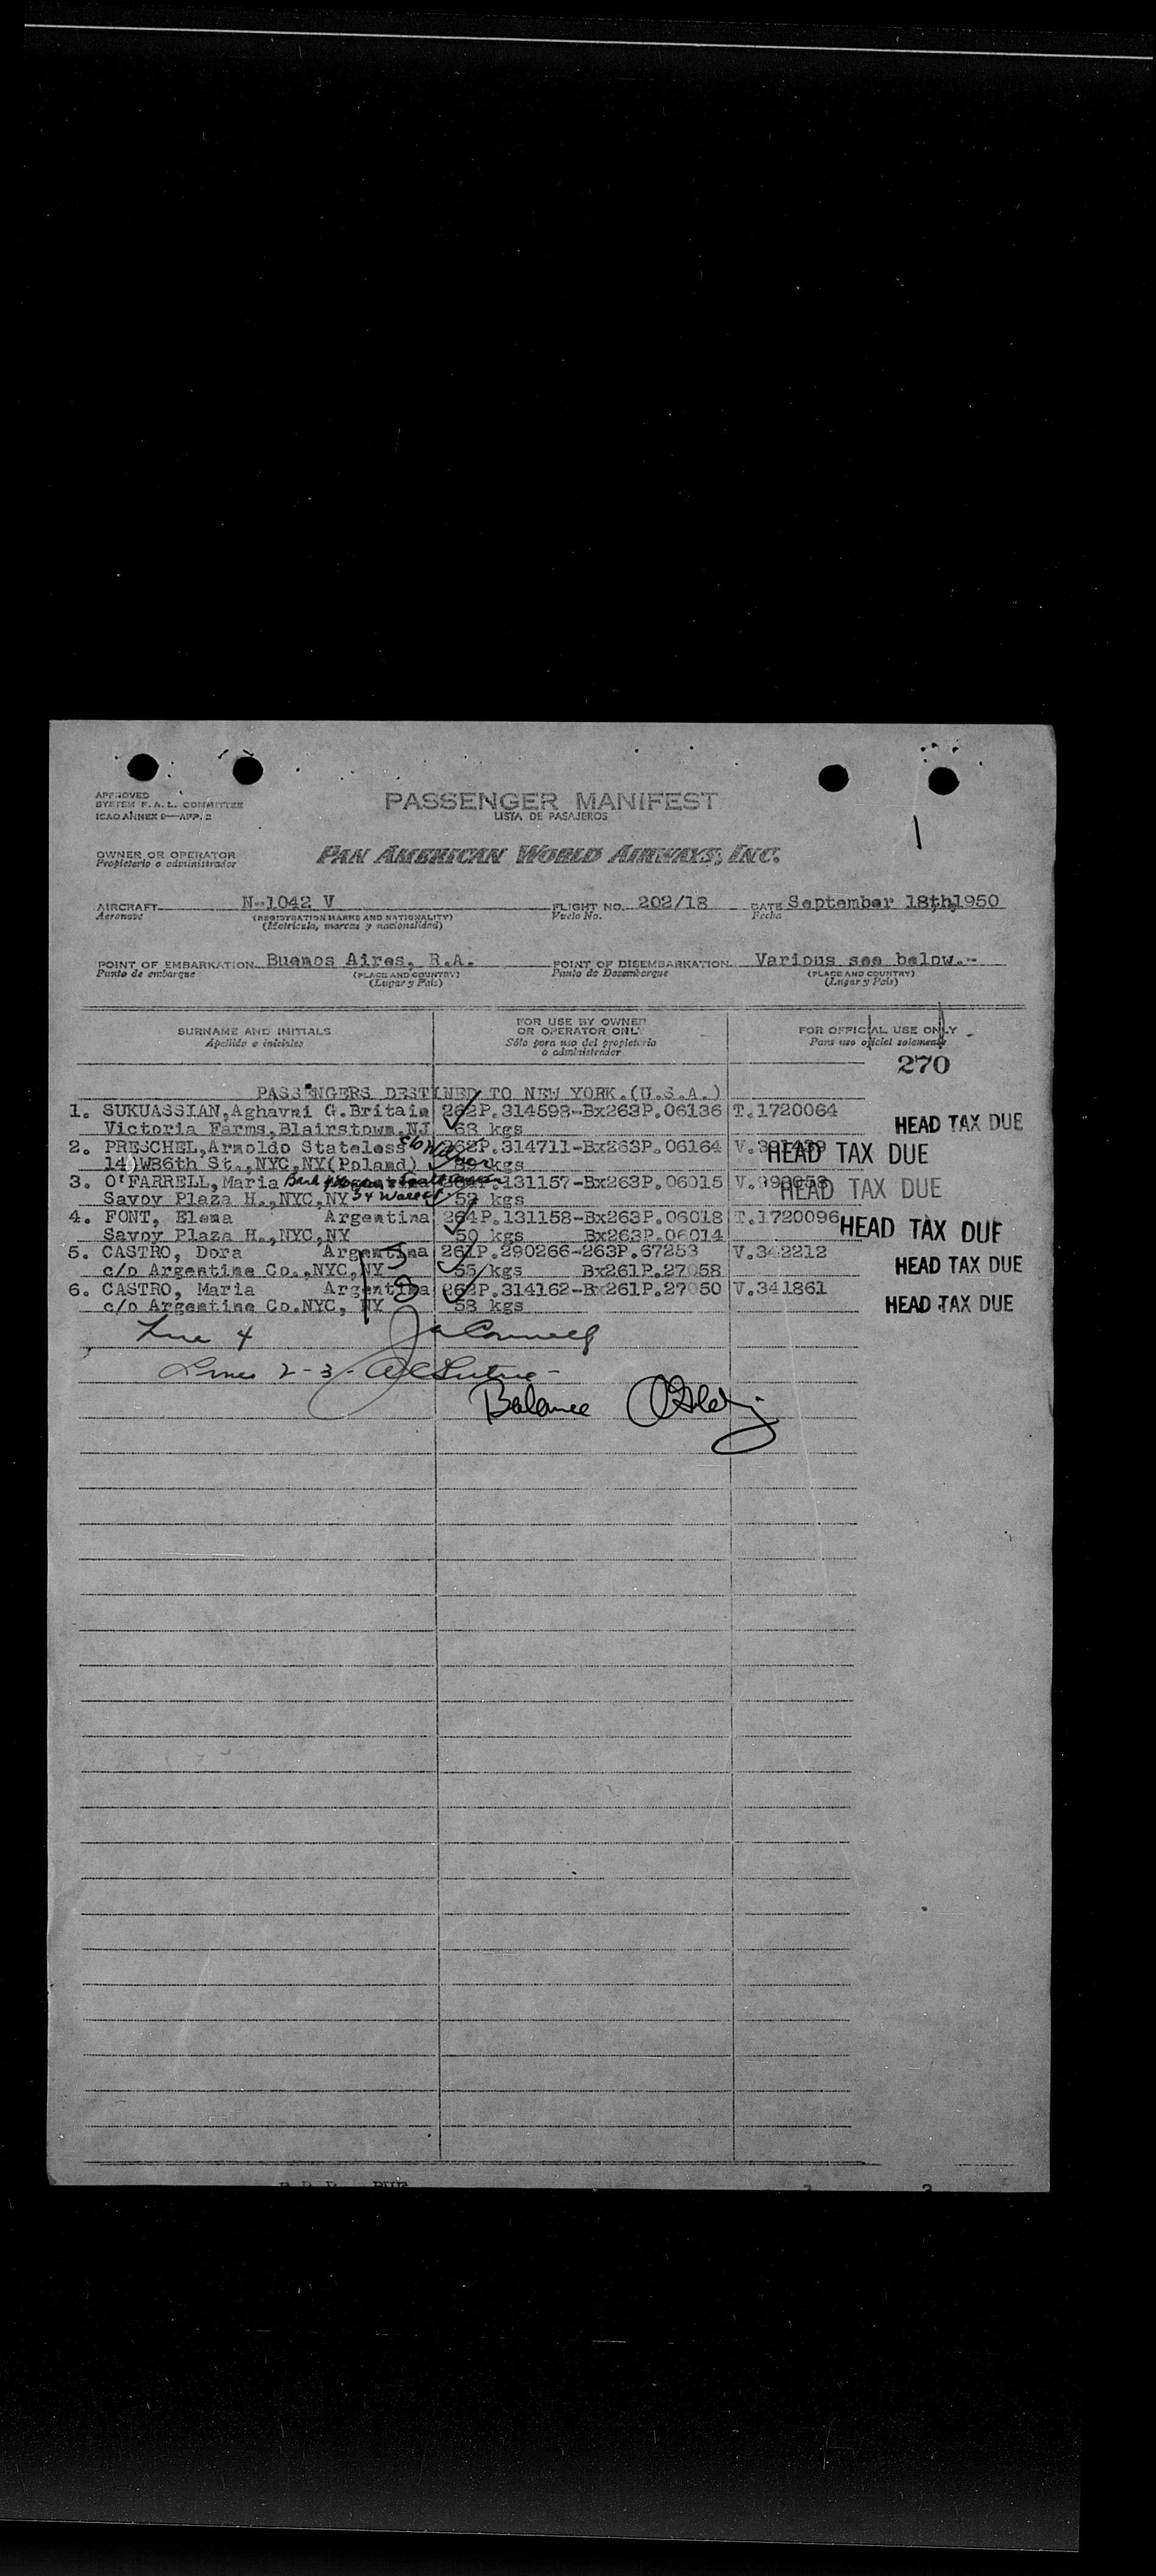 APPROVED
SYSTEM F. A. L. COMMITTEE
ICAO ANNEX 9—APP. 2
PASSENGER MANIFEST
LISTA DE PASAJEROS
OWNER OR OPERATOR
Propietario o administrador
PAN AMERICAN WORLD AIRWAYS, INC.
AIRCRAFT N-1042 V FLIGHT NO. 202/18 DATE September 18th,1950
Aeronave (REGISTRATION MARKS AND NATIONALITY) Vuelo No. Fecha
(Matrícula, marcas y nacionalidad)
POINT OF EMBARKATION Buenos Aires, R.A. POINT OF DISEMBARKATION Various see below.-
Punto de embarque (PLACE AND COUNTRY) Punto de Desembarque (PLACE AND COUNTRY)
(Lugar y País) (Lugar y País)
SURNAME AND INITIALS
Apellido e iniciales
FOR USE BY OWNER
OR OPERATOR ONLY
Sólo para uso del propietario
o administrador
FOR OFFICIAL USE ONLY
Para uso oficial solamente
270
PASSENGERS DESTINED TO NEW YORK.(U.S.A.)
1. SUKUASSIAN,Aghavni G.Britain 262P.314598-Bx263P.06136 T.1720064
Victoria Farms,Blairstown,NJ 68 kgs HEAD TAX DUE
2. PRESCHEL,Arnoldo Stateless 262P.314711-Bx263P.06164 HEAD TAX DUE
W86th St.,NYC,NY(Poland) kgs
3. O'FARRELL,Maria 131157-Bx263P.06015 HEAD TAX DUE
Savoy Plaza H.,NYC,NY 54 Wall 52 kgs
4. FONT, Elena Argentina 264P.131158-Bx263P.06018 T.1720096 HEAD TAX DUE
Savoy Plaza H.,NYC,NY 50 kgs Bx263P.06014
5. CASTRO, Dora Argentina 261P.290266-263P.67253 V.342212 HEAD TAX DUE
c/o Argentine Co.,NYC,NY 55/kgs Bx261P.27058
6. CASTRO, Maria Argentina 262P.314162-Bx261P.27050 V.341861 HEAD TAX DUE
c/o Argentine Co.NYC, NY 58 kgs
Line 4
Lines 2-3-
Balance